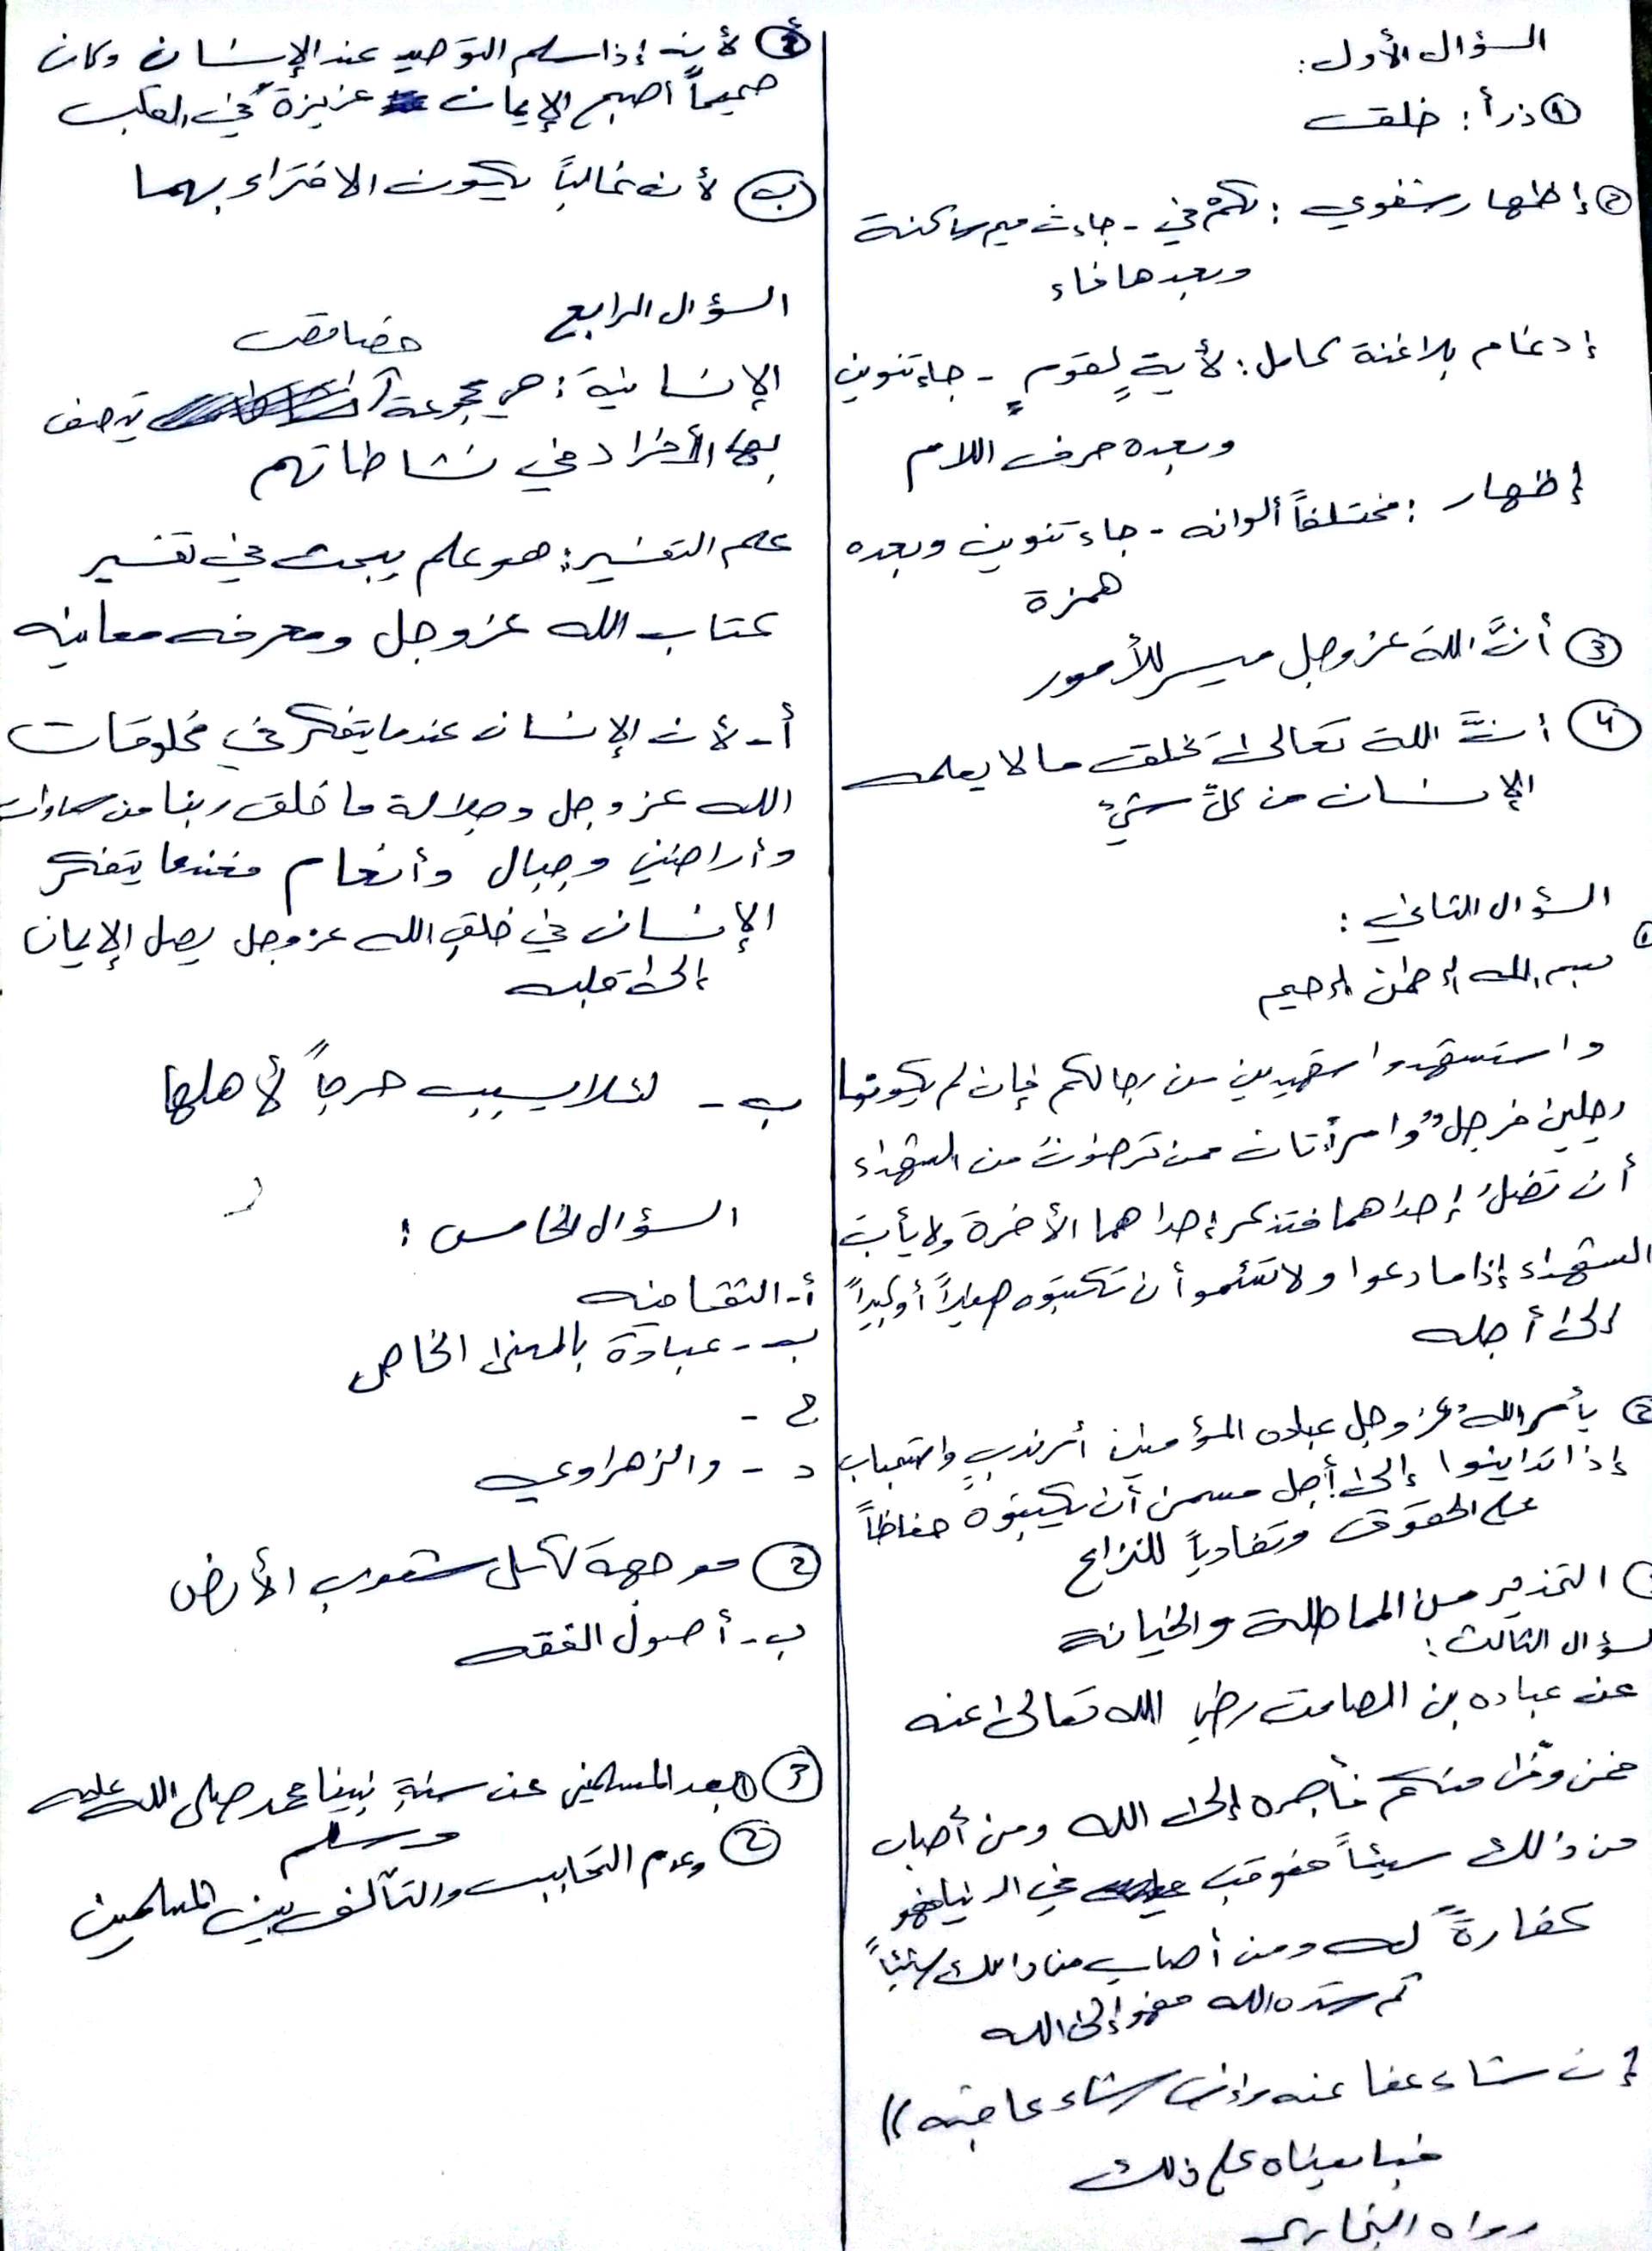 السؤال الأول:
① ذرأ: خلق
② إظهار شفوي: لكم في - جاءت ميم ساكنة
وبعدها فاء
إدغام بلا غنة كامل: لأيةٍ لقومٍ - جاء تنوين
وبعده حرف اللام
إظهار: مختلفاً ألوانه - جاء تنوين وبعده
همزة
③ أنَّ الله عز وجل ميسر للأمور
④ أنَّ الله تعالى خلق ما لا يعلمه
الإنسان من كلِّ شيءٍ
السؤال الثاني:
① بسم الله الرحمن الرحيم
واستشهدوا شهيدين من رجالكم فإن لم يكونا
رجلين فرجلٌ وامرأتان ممن ترضون من الشهداء
أن تضلَّ إحداهما فتذكر إحداهما الأخرة ولا يأبَ
الشهداء إذا ما دعوا ولا تسئموا أن تكتبوه صغيراً أو كبيراً
إلى أجله
② يأمر اللهُ عز وجل عباده المؤمنين أمر ندبٍ واستحباب
إذا تداينوا إلى أجل مسمى أن يكتبوه حفاظاً
على الحقوق وتفادياً للنزاع
التحذير من المماطلة والخيانة
سؤال الثالث:
عن عباده بن الصامت رضي الله تعالى عنه
فمن وفّى منكم فأجره إلى الله ومن أصاب
من ذلك سيئاً فعوقب في الدنيا فهو
كفارةً له ومن أصاب من ذالك شيئاً
ثم ستره الله فهو إلى الله
إن شاء عفا عنه وإن شاء عاقبه))
فبايعناه على ذلك
رواه البخاري
أ لأنه إذا سلم التوحيد عند الإنسان وكان
صميماً أصبح الإيمان عزيزة في القلب
ب لأن غالباً يكون الافتراء بهما
السؤال الرابع
الإنسانية: هي مجموعة خصائص يتصف
بها الأفراد في نشاطاتهم
علم التفسير: هو علم يبحث في تفسير
كتاب الله عز وجل ومعرفه معانيه
أ- لأن الإنسان عندما يتفكر في مخلوقات
الله عز وجل وجلالة ما خلق ربنا من سماوات
وأراضي وجبال وأنعام فعندما يتفكر
الإنسان في خلقِ الله عز وجل يصل الإيمان
إلى قلبه
ب- لئلا يسبب حرجاً لأهلها
السؤال الخامس:
أ- الثقافيه
ب- عبادة بالمعنى الخاص
ج -
د - والزهراوي
② موجهة لكل شعوب الأرض
ب- أصول الفقه
③ ① بعد المسلمين عن سنةِ نبينا محمد صلى الله عليه
وسلم
② وعدم التحابب والتآلف بين المسلمين